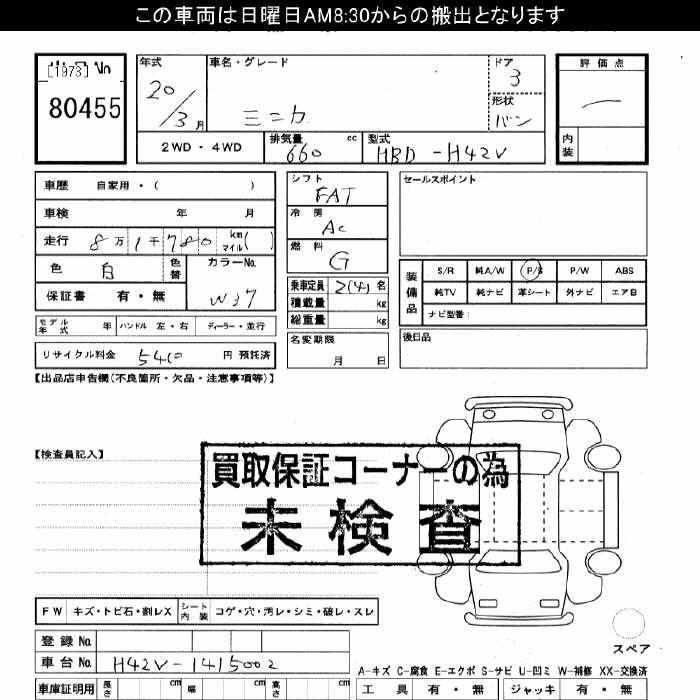 この車両は日曜日AM8:30からの搬出となります
[1973]
80455
年式
20/3月
車名・グレード
ミニカ
ドア
3
形状
バン
評価点
内装
2WD・4WD
排気量 660 cc
型式 HBD-H42V
車歴 自家用・( )
車検 年 月
走行 8万1千780 km マイル( )
色 白 色替
カラーNo. W37
保証書 有・無
モデル年式 年 ハンドル 左・右 ディーラー・並行
リサイクル料金 5410 円 預託済
シフト FAT
冷房 AC
燃料 G
乗車定員 2(4)名
積載量 kg
総重量 kg
名変期限 月 日
セールスポイント
装備品
S/R 純A/W P/S P/W ABS
純TV 純ナビ 革シート 外ナビ エアB
ナビ型番:
後日品
【出品店申告欄(不良箇所・欠品・注意事項等)】
【検査員記入】
買取保証コーナーの為
未検査
FW キズ・トビ石・割レX シート内装 コゲ・穴・汚レ・シミ・破レ・スレ
登録No.
車台No. H42V-1415002
スペア
A-キズ C-腐食 E-エクボ S-サビ U-凹ミ W-補修 XX-交換済
車庫証明用 長さ cm 幅 cm 高さ cm
工具 有・無 ジャッキ 有・無